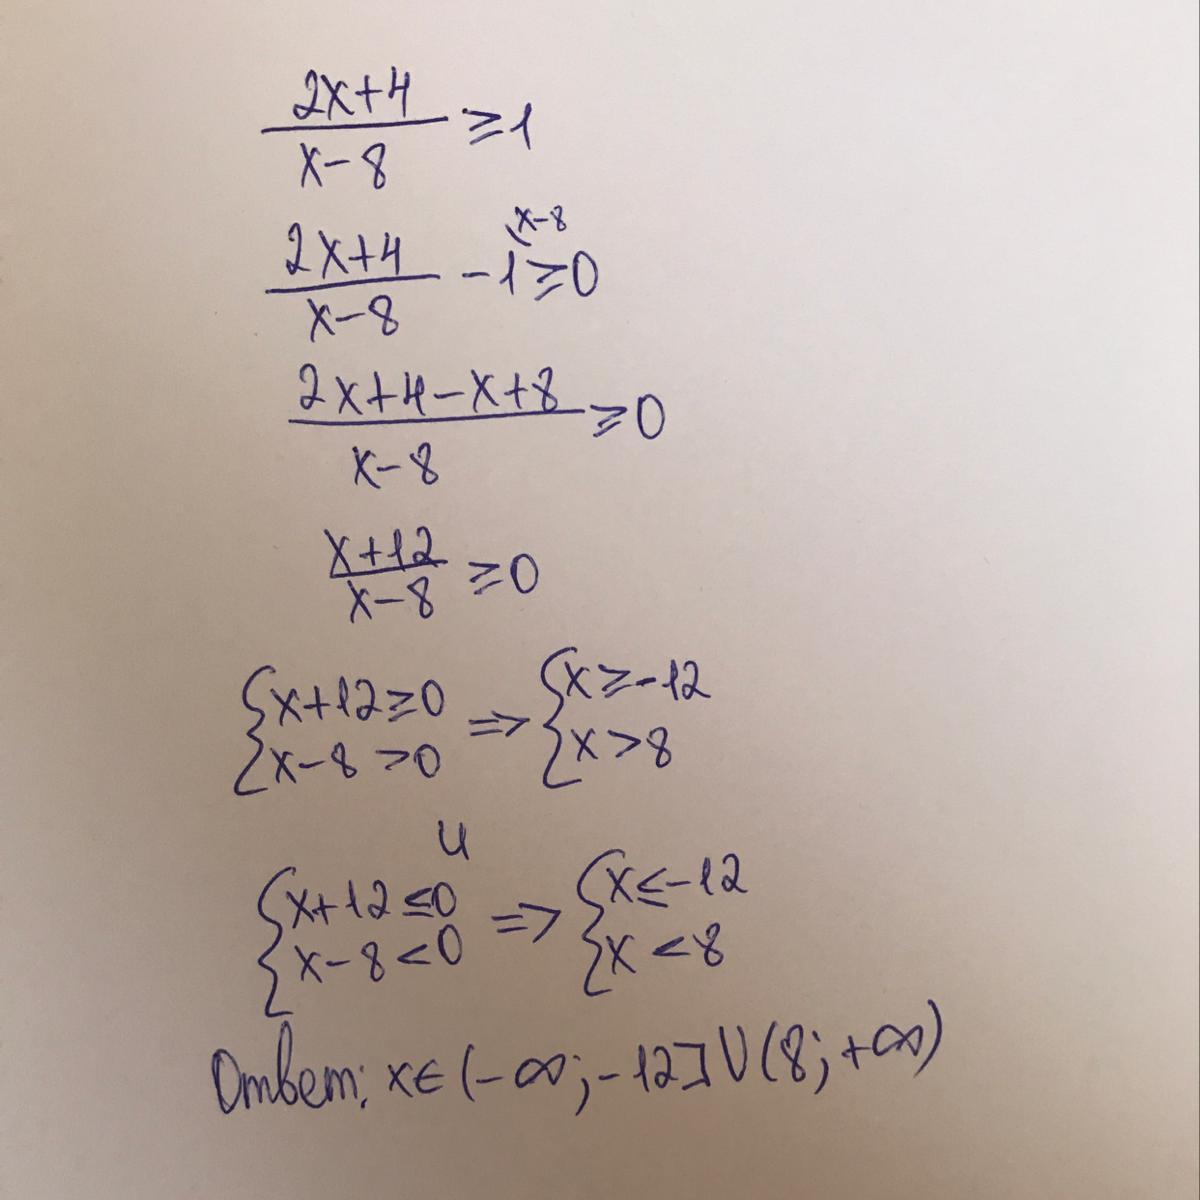 2x+4
x-8
≥1
2x+4
x-8
-1
x-8
≥0
2x+4-x+8
x-8
≥0
x+12
x-8
≥0
{x+12≥0 => {x≥-12
{x-8>0 {x>8
и
{x+12≤0 => {x≤-12
{x-8<0 {x<8
Ответ: x∈(-∞;-12]∪(8;+∞)